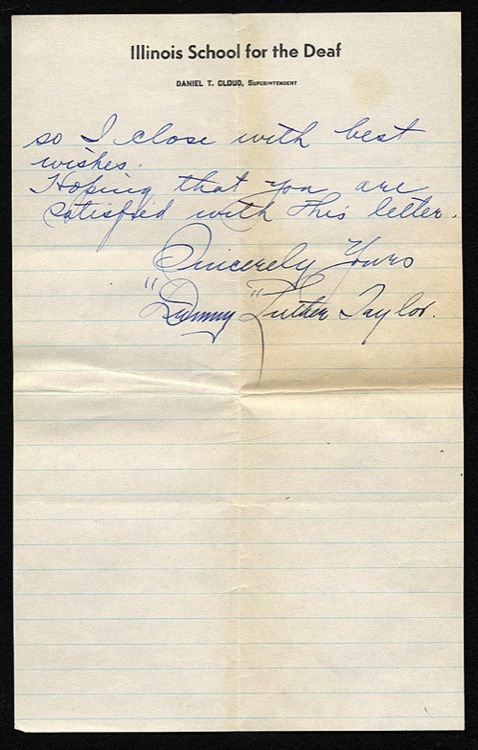 Illinois School for the Deaf
DANIEL T. CLOUD, SUPERINTENDENT
so I close with best
wishes.
Hoping that you are
satisfied with this letter.
Sincerely Yours
"Dummy" Luther Taylor.